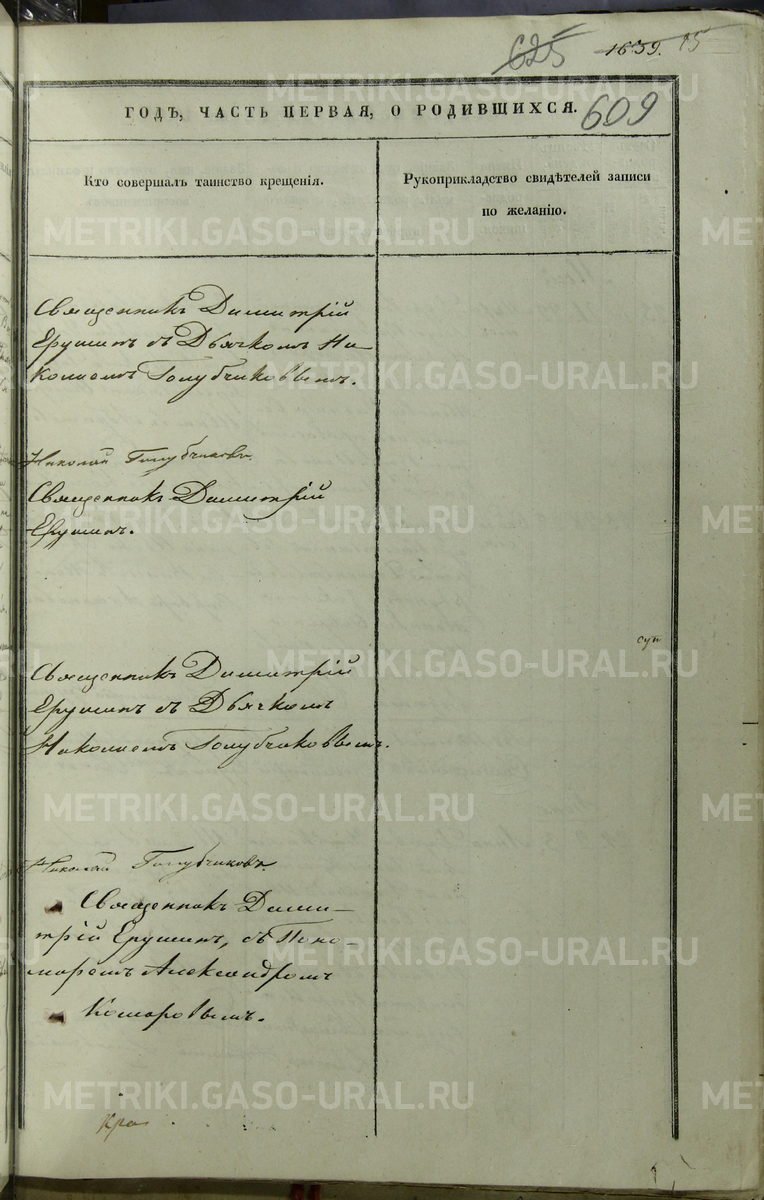 625 1639. 15
ГОДЪ, ЧАСТЬ ПЕРВАЯ, О РОДИВШИХСЯ. 609
Кто совершалъ таинство крещенія.
Рукоприкладство свидѣтелей записи
по желанію.
Священникъ Димитрій
Ерушинъ съ Дьячкомъ Ни-
колаемъ Голубчиковымъ.
Николай Голубчиковъ
Священникъ Димитрій
Ерушинъ.
Священникъ Димитрій
Ерушинъ съ Дьячкомъ
Николаемъ Голубчиковымъ.
Николай Голубчиковъ.
Священникъ Дими-
трій Ерушинъ, съ Поно-
маремъ Александромъ
Комаровымъ.
METRIKI.GASO-URAL.RU